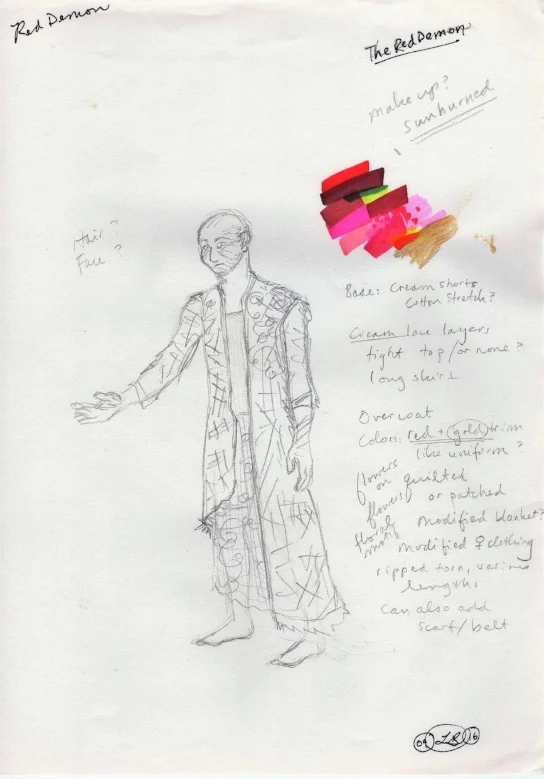 Red Demon
The Red Demon
make up?
sunburned
Hair?
Face?
Base: Cream shorts
Cotton stretch?
Cream lace layers
tight top/or none?
long skirt
Overcoat
Colors: red + gold trim
like uniform?
flowers
on quilted
flowers or patched
floral
motif
Modified blanket?
Modified ♀ clothing
ripped torn, various
lengths
can also add
scarf/belt
04 LB 16